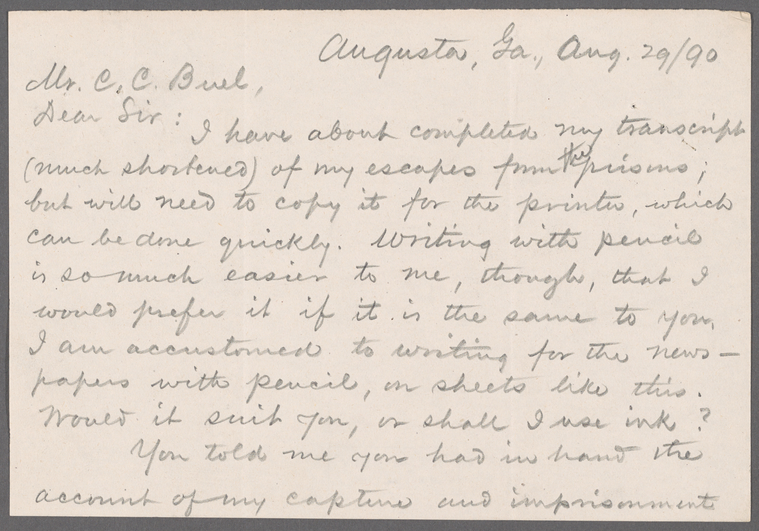 Augusta, Ga., Aug. 29/90
Mr. C. C. Buel,
Dear Sir:
I have about completed my transcript
(much shortened) of my escapes from the prisons;
but will need to copy it for the printer, which
can be done quickly. Writing with pencil
is so much easier to me, though, that I
would prefer it if it is the same to you.
I am accustomed to writing for the news-
papers with pencil, on sheets like this.
Would it suit you, or shall I use ink?
You told me you had in hand the
account of my capture and imprisonment